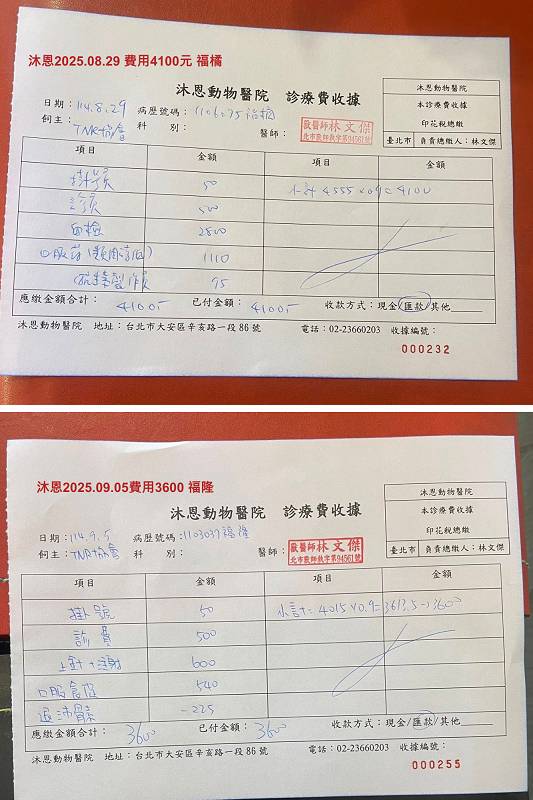 沐恩2025.08.29 費用4100元 福橘
沐恩動物醫院 診療費收據
沐恩動物醫院
本診療費收據
印花稅總繳
臺北市 負責總繳人：林文傑
日期：114.8.29 病歷號碼：
飼主：TNR協會 科 別： 醫師： 獸醫師林文傑
北市獸醫執字第94561號
項目 金額 項目 金額
掛號 50 小計 4555 x0.9= 4100
診 500
血檢 2800
口服藥 1110
95
應繳金額合計： 4100 已付金額： 4100 收款方式：現金/匯款/其他
沐恩動物醫院 地址：台北市大安區辛亥路一段86號 電話：02-23660203 收據編號：
000232
沐恩2025.09.05費用3600 福隆
沐恩動物醫院 診療費收據
沐恩動物醫院
本診療費收據
印花稅總繳
臺北市 負責總繳人：林文傑
日期：114.9.5 病歷號碼：1103039福隆
飼主：TNR協會 科 別： 醫師： 獸醫師林文傑
北市獸醫執字第94561號
項目 金額 項目 金額
掛號 50 小計= 4015 x0.9=3613.5→3600
診費 500
600
口服 540
退 -225
應繳金額合計： 3600 已付金額： 3600 收款方式：現金/匯款/其他
沐恩動物醫院 地址：台北市大安區辛亥路一段86號 電話：02-23660203 收據編號：
000255